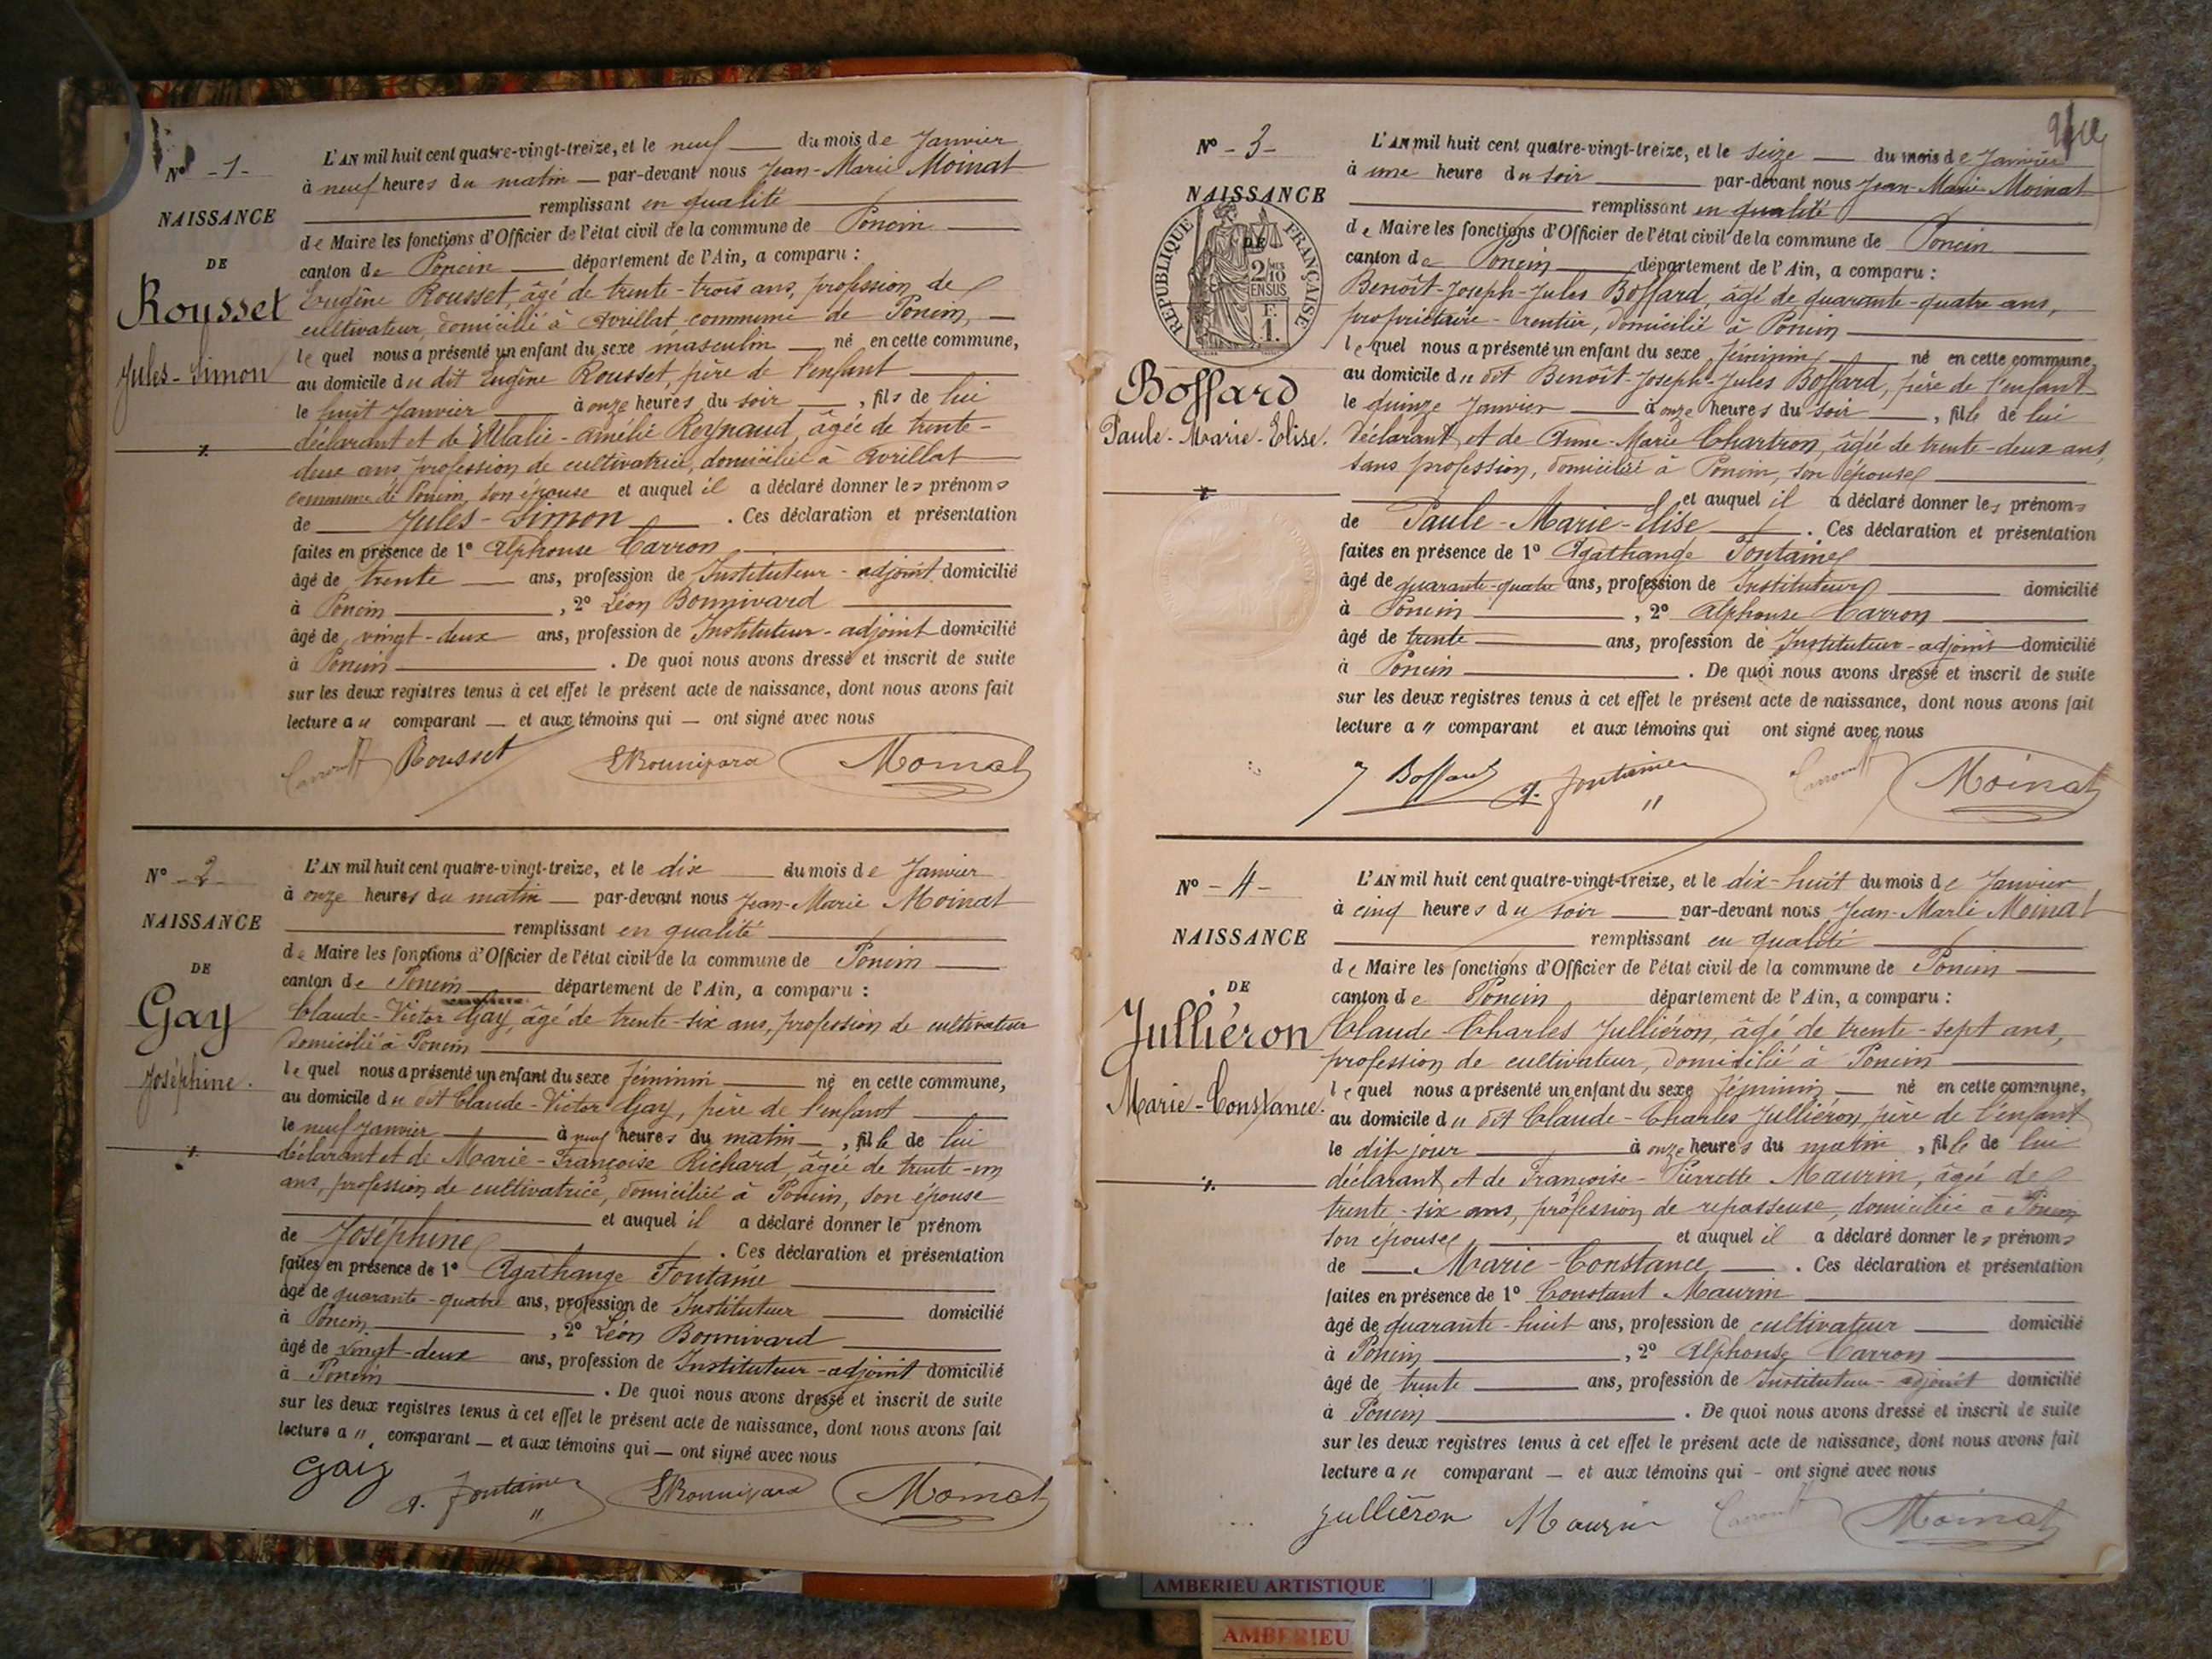 Nº -1-
NAISSANCE
DE
Rousset
Jules-Simon
L'AN mil huit cent quatre-vingt-treize, et le neuf du mois de Janvier
à neuf heures du matin par-devant nous Jean-Marie Moinat
remplissant en qualité
de Maire les fonctions d'Officier de l'état civil de la commune de Poncin
canton de Poncin département de l'Ain, a comparu :
Eugène Rousset, âgé de trente-trois ans, profession de
cultivateur, domicilié à Avrillat commune de Poncin,
lequel nous a présenté un enfant du sexe masculin né en cette commune,
au domicile du dit Eugène Rousset, père de l'enfant
le huit Janvier à onze heures du soir, fils de lui
déclarant et de Eulalie-Amélie Reynaud, âgée de trente-
deux ans, profession de cultivatrice, domiciliée à Avrillat
commune de Poncin, son épouse et auquel il a déclaré donner les prénoms
de Jules-Simon. Ces déclaration et présentation
faites en présence de 1º Alphonse Carron
âgé de trente ans, profession de Instituteur-adjoint domicilié
à Poncin, 2º Léon Bonnivard
âgé de vingt-deux ans, profession de Instituteur-adjoint domicilié
à Poncin. De quoi nous avons dressé et inscrit de suite
sur les deux registres tenus à cet effet le présent acte de naissance, dont nous avons fait
lecture au comparant et aux témoins qui ont signé avec nous
Rousset LBonnivard Moinat
Nº -2-
NAISSANCE
DE
Gay
Joséphine.
L'AN mil huit cent quatre-vingt-treize, et le dix du mois de Janvier
à onze heures du matin par-devant nous Jean-Marie Moinat
remplissant en qualité
de Maire les fonctions d'Officier de l'état civil de la commune de Poncin
canton de Poncin département de l'Ain, a comparu :
Claude-Victor Gay, âgé de trente-six ans, profession de cultivateur
domicilié à Poncin
lequel nous a présenté un enfant du sexe féminin né en cette commune,
au domicile du dit Claude-Victor Gay, père de l'enfant
le neuf Janvier à neuf heures du matin, fille de lui
déclarant et de Marie-Françoise Richard, âgée de trente-un
ans, profession de cultivatrice, domiciliée à Poncin, son épouse
et auquel il a déclaré donner le prénom
de Joséphine. Ces déclaration et présentation
faites en présence de 1º Agathange Fontaine
âgé de quarante-quatre ans, profession de Instituteur domicilié
à Poncin, 2º Léon Bonnivard
âgé de vingt-deux ans, profession de Instituteur-adjoint domicilié
à Poncin. De quoi nous avons dressé et inscrit de suite
sur les deux registres tenus à cet effet le présent acte de naissance, dont nous avons fait
lecture au comparant et aux témoins qui ont signé avec nous
Gay A. Fontaine LBonnivard Moinat
Nº -3-
NAISSANCE
DE
RÉPUBLIQUE FRANÇAISE
2/10 EN SUS
F. 1.
Boffard
Paule-Marie-Elise.
L'AN mil huit cent quatre-vingt-treize, et le seize du mois de Janvier
à une heure du soir par-devant nous Jean-Marie Moinat
remplissant en qualité
de Maire les fonctions d'Officier de l'état civil de la commune de Poncin
canton de Poncin département de l'Ain, a comparu :
Benoît-Joseph-Jules Boffard, âgé de quarante-quatre ans,
propriétaire-rentier, domicilié à Poncin
lequel nous a présenté un enfant du sexe féminin né en cette commune,
au domicile du dit Benoît-Joseph-Jules Boffard, père de l'enfant
le quinze Janvier à onze heures du soir, fille de lui
déclarant, et de Anne-Marie Chartron, âgée de trente-deux ans,
sans profession, domiciliée à Poncin, son épouse
et auquel il a déclaré donner les prénoms
de Paule-Marie-Elise. Ces déclaration et présentation
faites en présence de 1º Agathange Fontaine
âgé de quarante-quatre ans, profession de Instituteur domicilié
à Poncin, 2º Alphonse Carron
âgé de trente ans, profession de Instituteur-adjoint domicilié
à Poncin. De quoi nous avons dressé et inscrit de suite
sur les deux registres tenus à cet effet le présent acte de naissance, dont nous avons fait
lecture au comparant et aux témoins qui ont signé avec nous
J Boffard A. Fontaine Moinat
Nº -4-
NAISSANCE
DE
Julliéron
Marie-Constance.
L'AN mil huit cent quatre-vingt-treize, et le dix-huit du mois de Janvier,
à cinq heures du soir par-devant nous Jean-Marie Moinat
remplissant en qualité
de Maire les fonctions d'Officier de l'état civil de la commune de Poncin
canton de Poncin département de l'Ain, a comparu :
Claude-Charles Julliéron, âgé de trente-sept ans,
profession de cultivateur, domicilié à Poncin
lequel nous a présenté un enfant du sexe féminin né en cette commune,
au domicile du dit Claude-Charles Julliéron, père de l'enfant
le dit jour à onze heures du matin, fille de lui
déclarant, et de Françoise-Pierrette Maurin, âgée de
trente-six ans, profession de repasseuse, domiciliée à Poncin
son épouse, et auquel il a déclaré donner les prénoms
de Marie-Constance. Ces déclaration et présentation
faites en présence de 1º Constant Maurin
âgé de quarante-huit ans, profession de cultivateur domicilié
à Poncin, 2º Alphonse Carron
âgé de trente ans, profession de Instituteur-adjoint domicilié
à Poncin. De quoi nous avons dressé et inscrit de suite
sur les deux registres tenus à cet effet le présent acte de naissance, dont nous avons fait
lecture au comparant et aux témoins qui ont signé avec nous
Julliéron Maurin Moinat
AMBERIEU ARTISTIQUE
AMBERIEU